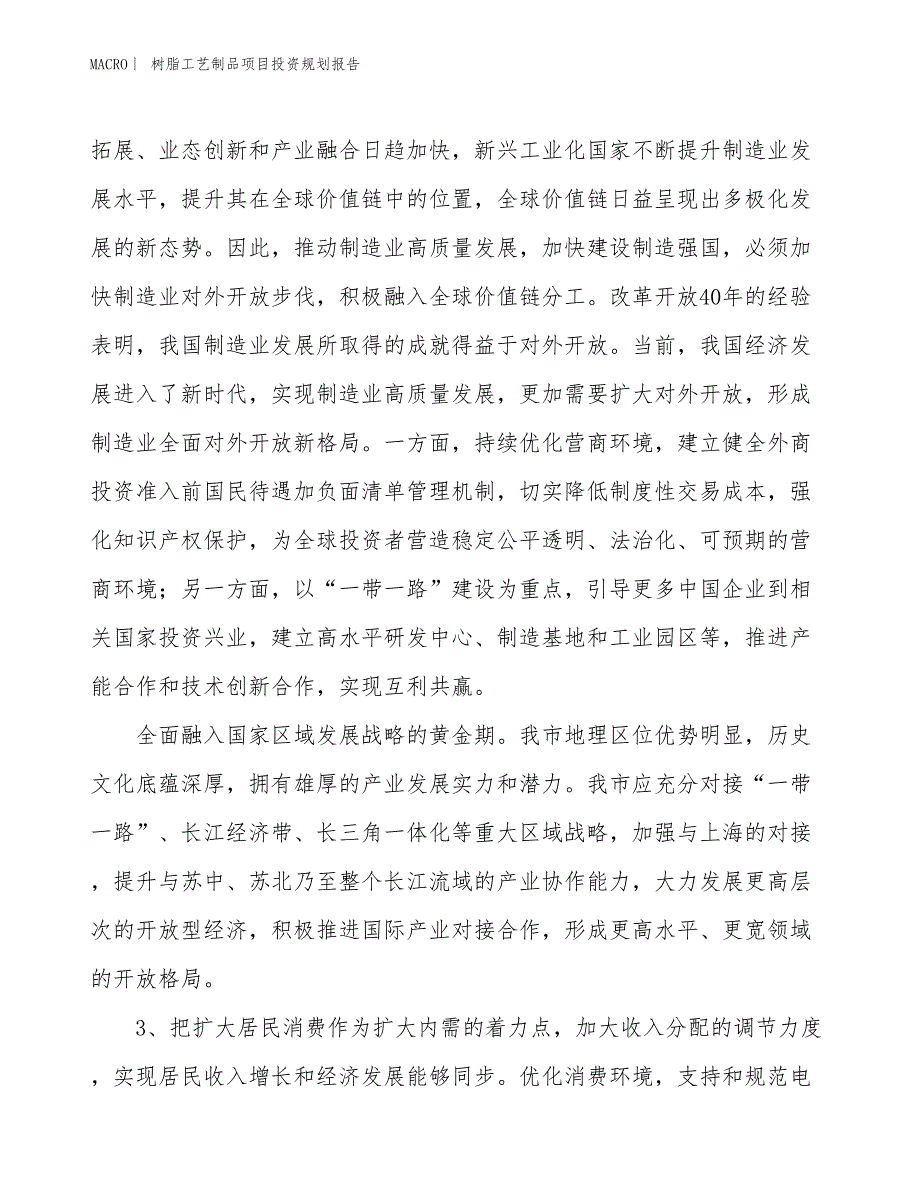 MACRO| 树脂工艺制品项目投资规划报告
拓展、业态创新和产业融合日趋加快，新兴工业化国家不断提升制造业发
展水平，提升其在全球价值链中的位置，全球价值链日益呈现出多极化发
展的新态势。因此，推动制造业高质量发展，加快建设制造强国，必须加
快制造业对外开放步伐，积极融入全球价值链分工。改革开放40年的经验
表明，我国制造业发展所取得的成就得益于对外开放。当前，我国经济发
展进入了新时代，实现制造业高质量发展，更加需要扩大对外开放，形成
制造业全面对外开放新格局。一方面，持续优化营商环境，建立健全外商
投资准入前国民待遇加负面清单管理机制，切实降低制度性交易成本，强
化知识产权保护，为全球投资者营造稳定公平透明、法治化、可预期的营
商环境；另一方面，以“一带一路”建设为重点，引导更多中国企业到相
关国家投资兴业，建立高水平研发中心、制造基地和工业园区等，推进产
能合作和技术创新合作，实现互利共赢。
全面融入国家区域发展战略的黄金期。我市地理区位优势明显，历史
文化底蕴深厚，拥有雄厚的产业发展实力和潜力。我市应充分对接“一带
一路”、长江经济带、长三角一体化等重大区域战略，加强与上海的对接
，提升与苏中、苏北乃至整个长江流域的产业协作能力，大力发展更高层
次的开放型经济，积极推进国际产业对接合作，形成更高水平、更宽领域
的开放格局。
3、把扩大居民消费作为扩大内需的着力点，加大收入分配的调节力度
，实现居民收入增长和经济发展能够同步。优化消费环境，支持和规范电